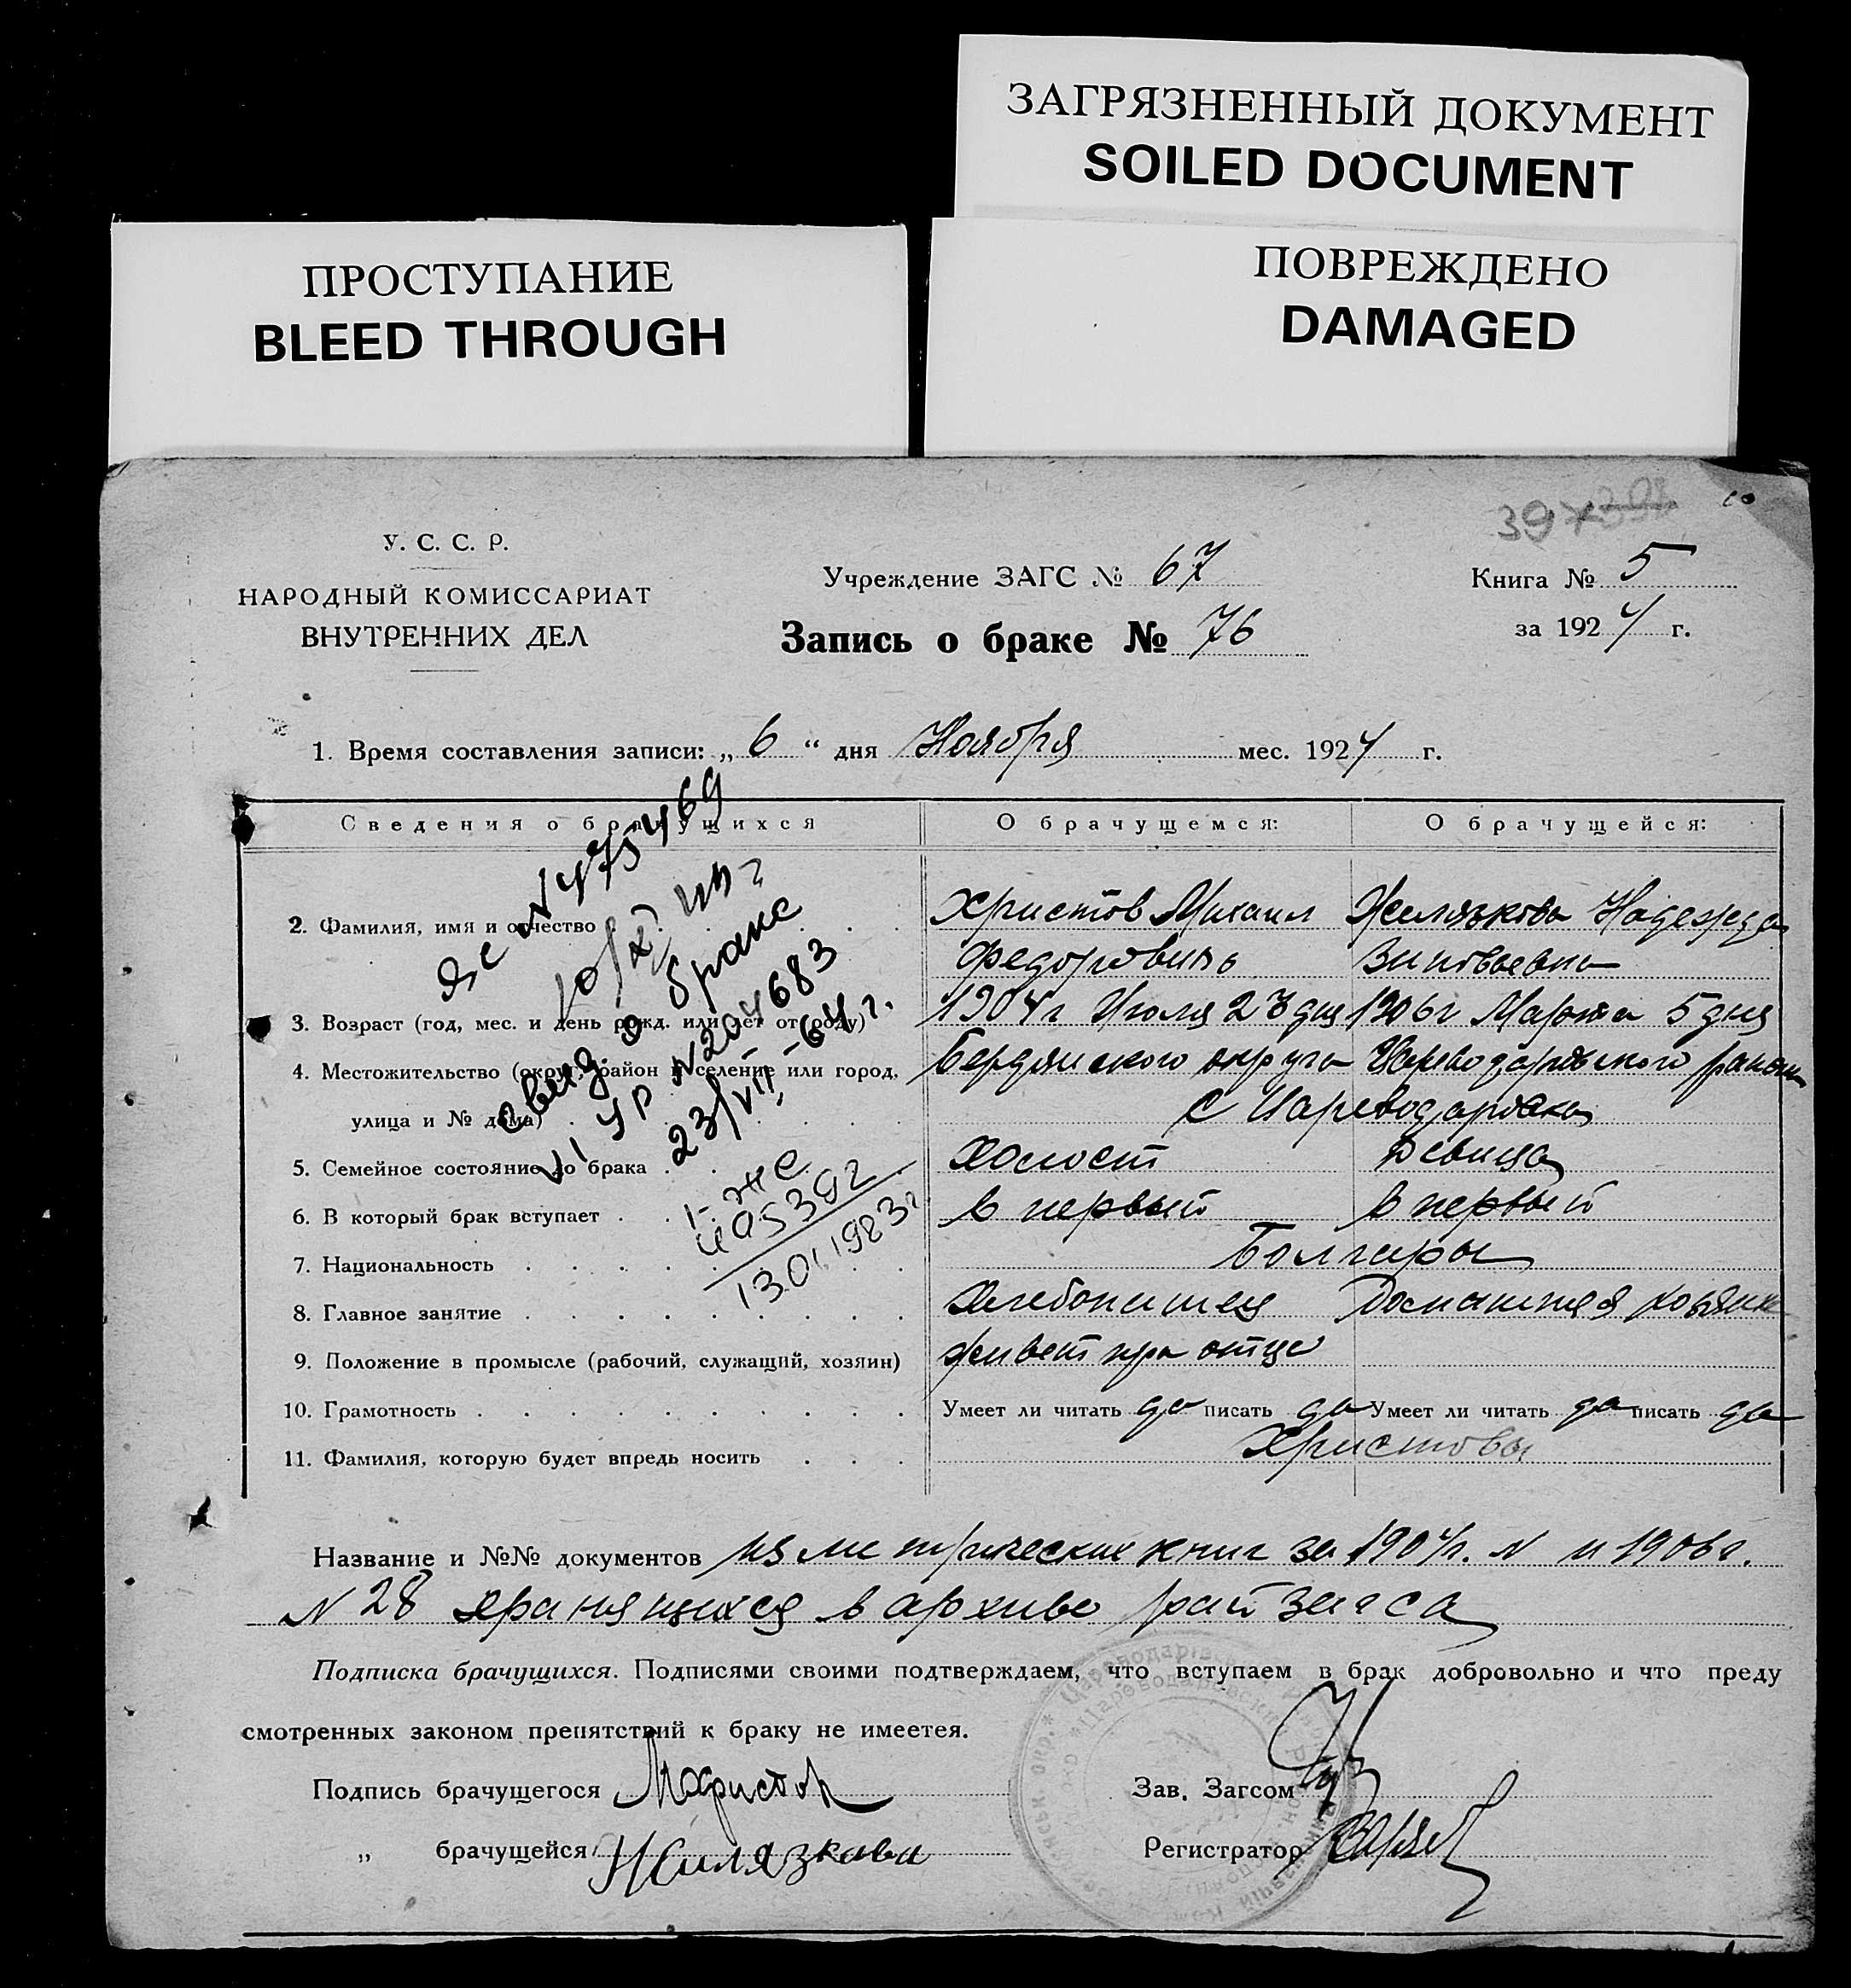 ЗАГРЯЗНЕННЫЙ ДОКУМЕНТ
SOILED DOCUMENT
ПРОСТУПАНИЕ
BLEED THROUGH
ПОВРЕЖДЕНО
DAMAGED
397
У. С. С. Р.
НАРОДНЫЙ КОМИССАРИАТ
ВНУТРЕННИХ ДЕЛ
Учреждение ЗАГС № 67
Запись о браке № 76
Книга № 5
за 1924 г.
1. Время составления записи: „ 6 “ дня Ноября мес. 1924 г.
Сведения о брачущихся О брачущемся: О брачущейся:
2. Фамилия, имя и отчество Христов Михаил Желязкова Надежда
Федорович Зиновьевна
3. Возраст (год, мес. и день рожд. или лет от роду) 1904 г Июля 23 дня 1906 г Марта 5 дня
4. Местожительство (округ, район и селение или город, Бердянского округа Цареводаровского района
улица и № дома) С Цареводаровка
5. Семейное состояние до брака Холост Девица
6. В который брак вступает в первый в первый
7. Национальность Болгары
8. Главное занятие Хлебопашец Домашняя хозяйка
9. Положение в промысле (рабочий, служащий, хозяин) живет при отце
10. Грамотность Умеет ли читать да писать да Умеет ли читать да писать да
11. Фамилия, которую будет впредь носить Христовы
N 475469
свид. о браке
VI УР N 204683
23/VII-64 г.
I-ЖС
405392
13041983г
Название и №№ документов из метрических книг за 1904 г. N и 1906 г.
N 28 хранящихся в архиве райзагса
Подписка брачущихся. Подписями своими подтверждаем, что вступаем в брак добровольно и что преду
смотренных законом препятствий к браку не имеетея.
Подпись брачущегося МХристов
Зав. Загсом
„ брачущейся НЖилязкова
Регистратор